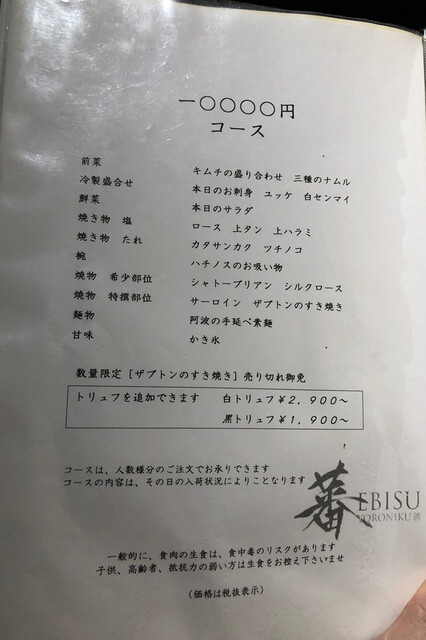 一〇〇〇〇円
コース
前菜 キムチの盛り合わせ 三種のナムル
冷製盛合せ 本日のお刺身 ユッケ 白センマイ
鮮菜 本日のサラダ
焼き物 塩 ロース 上タン 上ハラミ
焼き物 たれ カタサンカク ツチノコ
椀 ハチノスのお吸い物
焼物 希少部位 シャトーブリアン シルクロース
焼物 特撰部位 サーロイン ザブトンのすき焼き
麺物 阿波の手延べ素麺
甘味 かき氷
数量限定［ザブトンのすき焼き］売り切れ御免
トリュフを追加できます 白トリュフ￥2,900〜
黒トリュフ￥1,900〜
コースは、人数様分のご注文でお承りできます
コースの内容は、その日の入荷状況によりことなります
蕃 EBISU
YORONIKU
一般的に、食肉の生食は、食中毒のリスクがあります
子供、高齢者、抵抗力の弱い方は生食をお控え下さいませ
（価格は税抜表示）